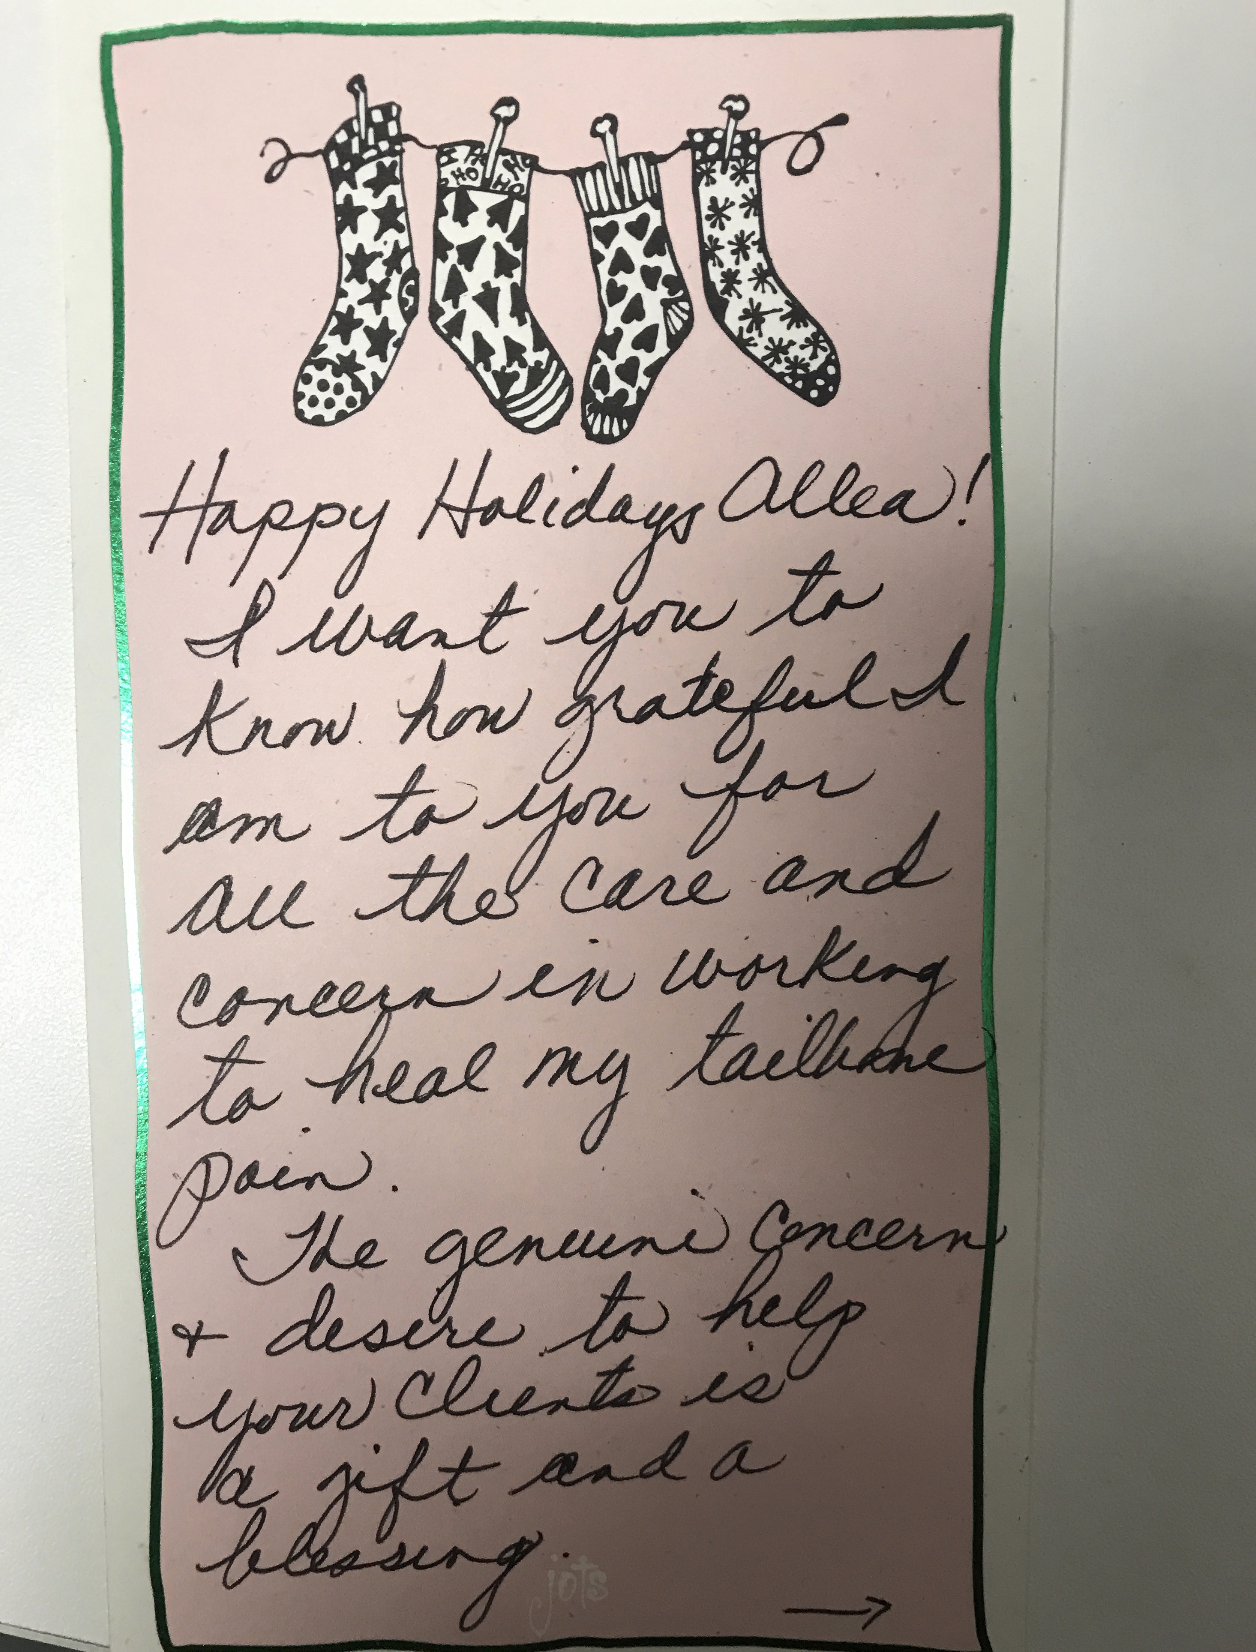 HO HO HO
Happy Holidays Allea!
I want you to
know how grateful I
am to you for
all the care and
concern in working
to heal my tailbone
pain.
The genuine concern
+ desire to help
your clients is
a gift and a
blessing.
jots
→